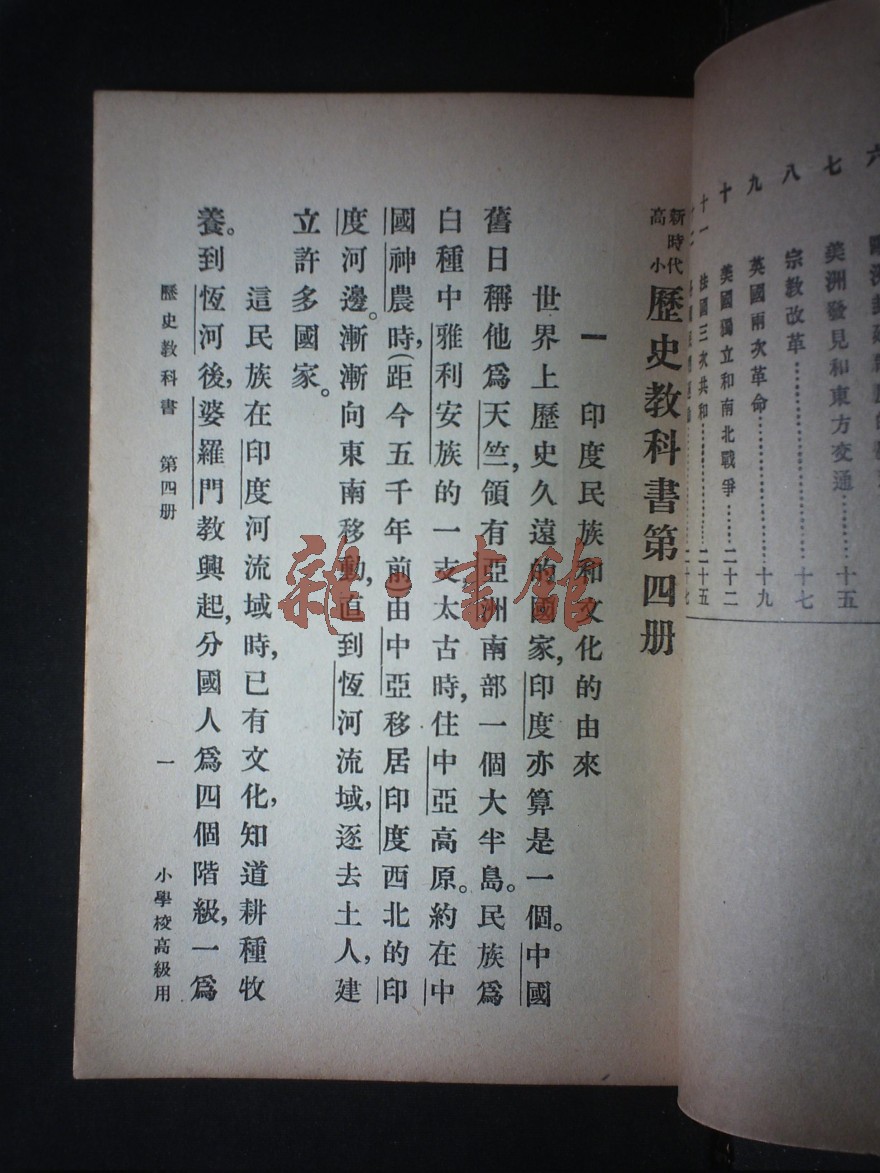 七 美洲發見和東方交通………十五
八 宗教改革………十七
九 英國兩次革命………十九
十 美國獨立和南北戰爭……二十二
十一 法國三次共和………二十五
新時代高小
歷史教科書第四册
一 印度民族和文化的由來
世界上歷史久遠的國家,印度亦算是一個。中國
舊日稱他爲天竺,領有亞洲南部一個大半島。民族爲
白種中雅利安族的一支,太古時,住中亞高原。約在中
國神農時,(距今五千年前)由中亞移居印度西北的印
度河邊。漸漸向東南移動,直到恆河流域,逐去土人,建
立許多國家。
這民族在印度河流域時,已有文化,知道耕種牧
養。到恆河後,婆羅門教興起,分國人爲四個階級,一爲
歷史教科書 第四册 一 小學校高級用
雜·書館